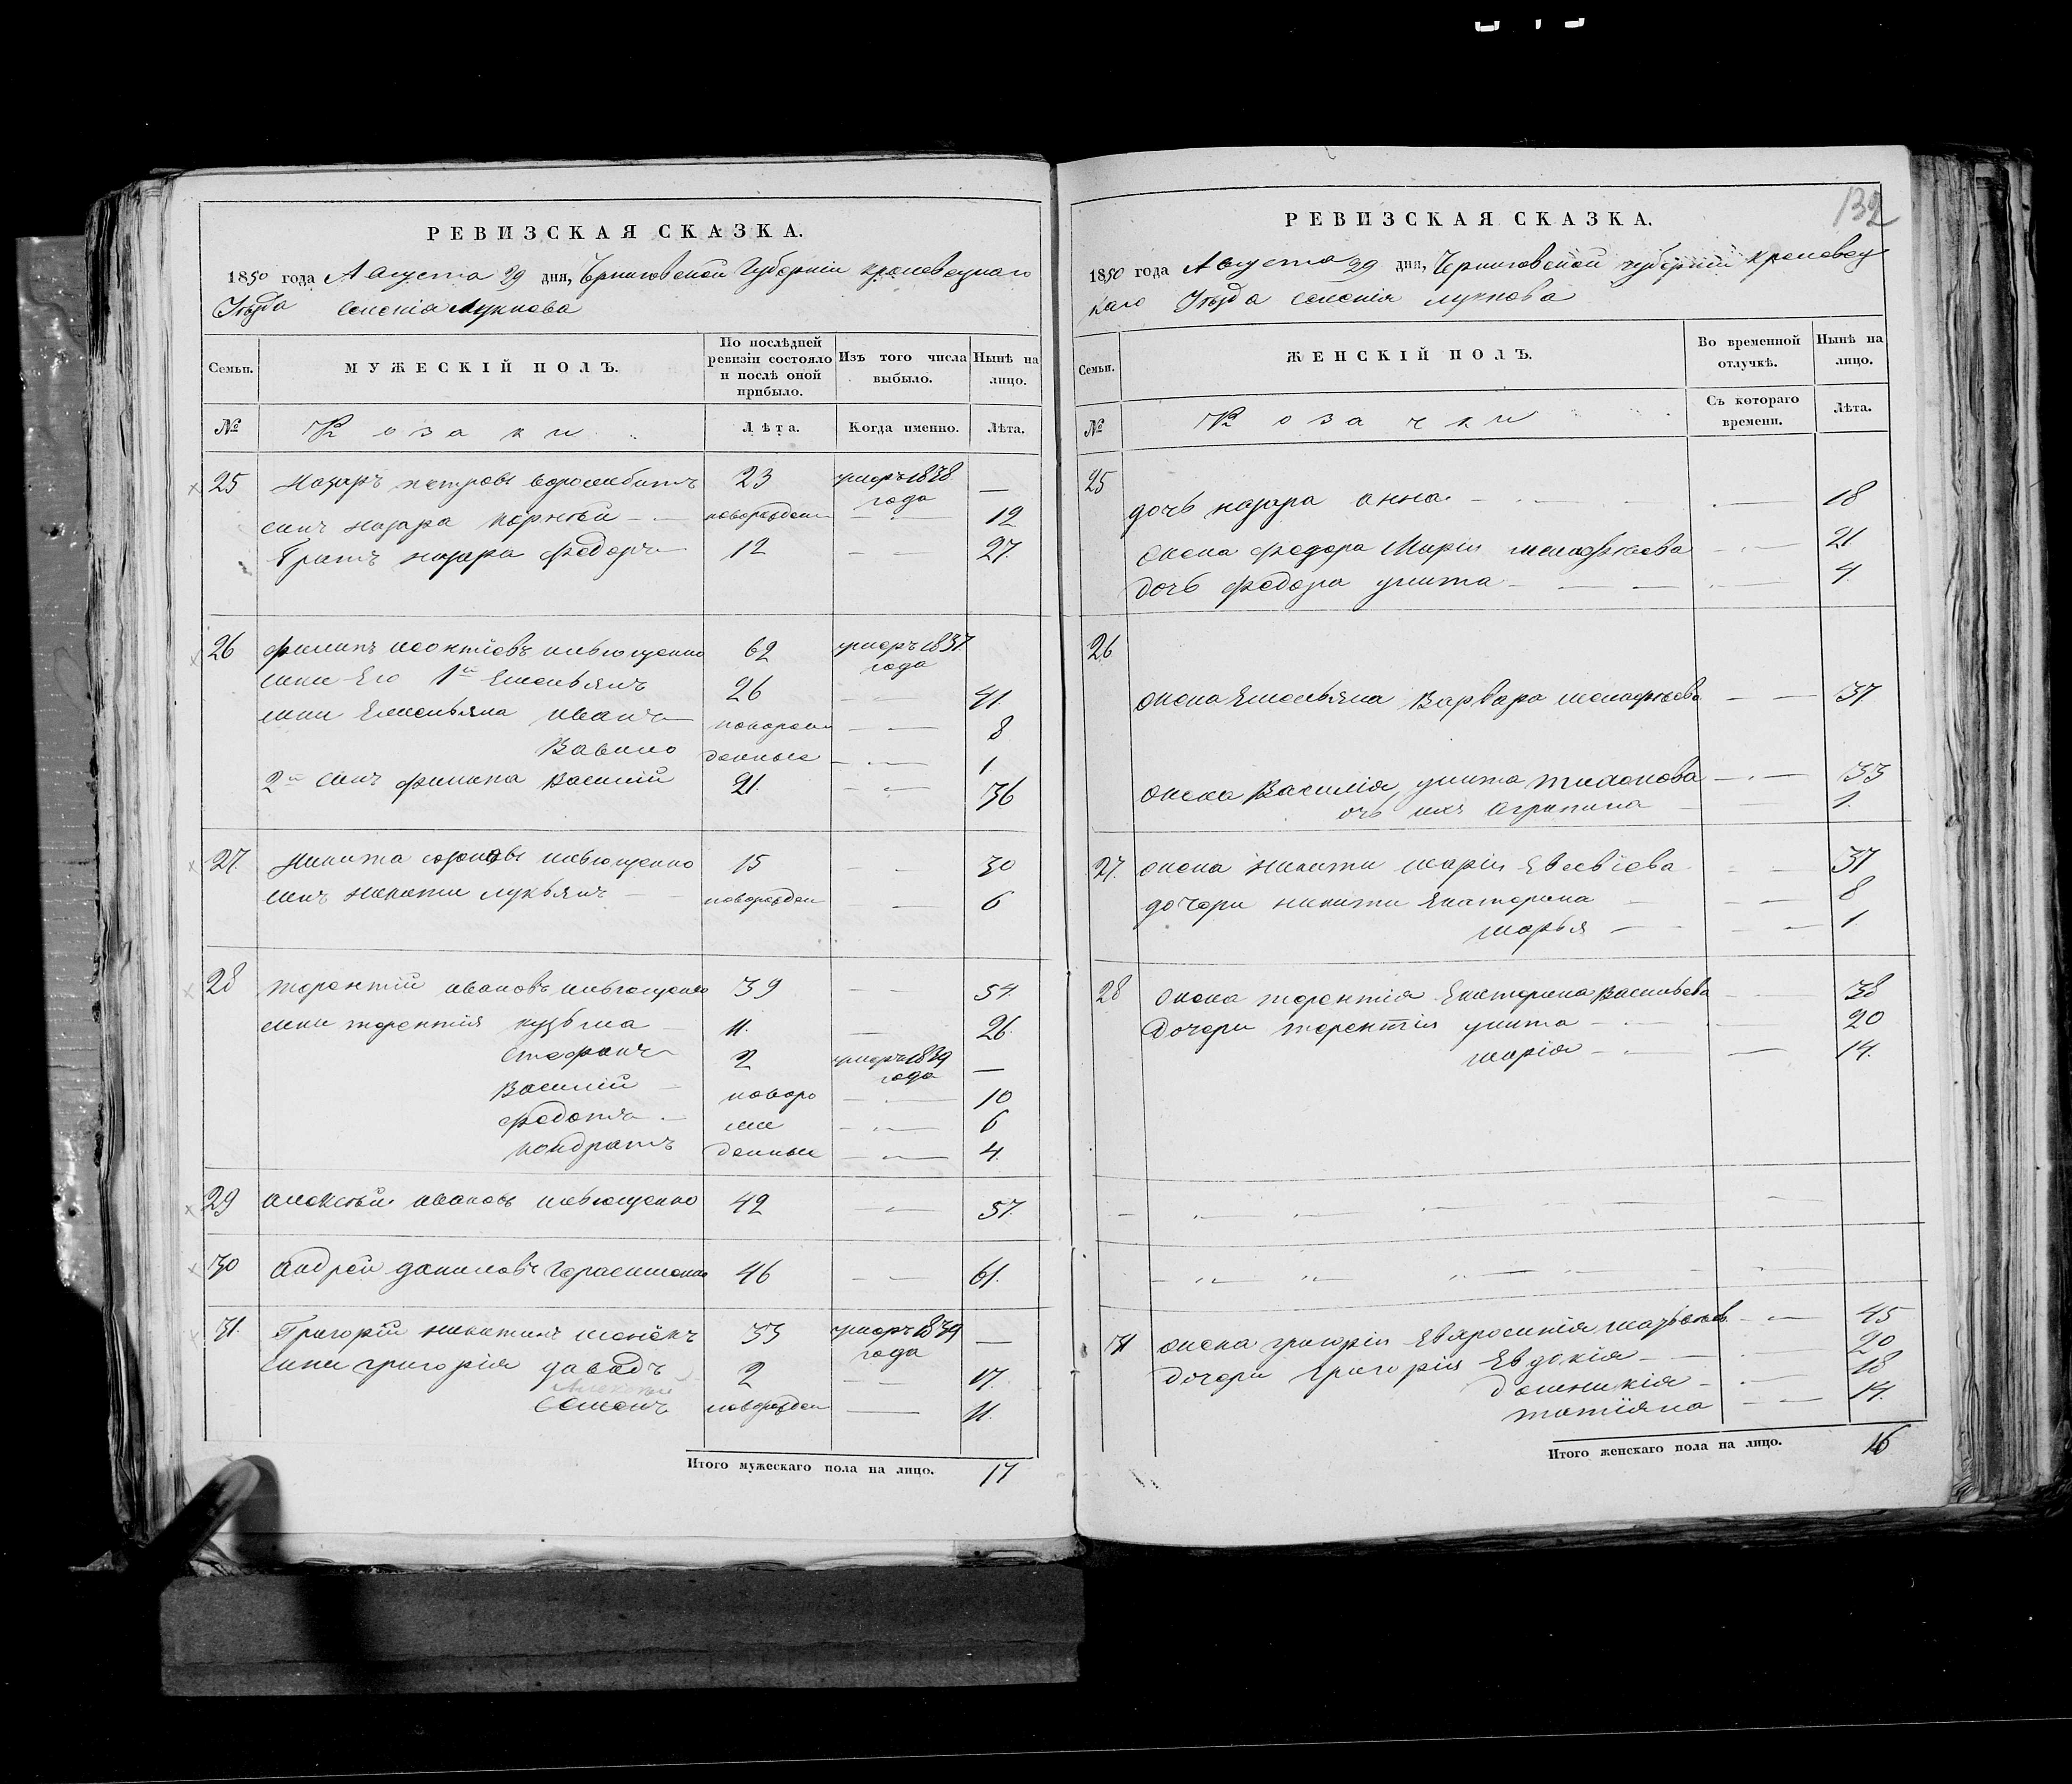 132
РЕВИЗСКАЯ СКАЗКА.
1850 года Августа 29 дня, Черниговской Губерніи кролевецкаго
Уѣзда селенія Лукнова
Семьи.
МУЖЕСКІЙ ПОЛЪ.
По послѣдней ревизіи состояло и послѣ оной прибыло.
Изъ того числа выбыло.
Нынѣ на лицо.
№
Козаки
Лѣта.
Когда именно.
Лѣта.
25 Назаръ петровъ 23 умеръ 1838 года —
сынъ назара корнѣй новорожден 12
братъ назара федоръ 12 27
26 филипъ ивсюценко 62 умеръ 1837 года
сыны Его 1й Емельянъ 26 41.
сыны Емельяна иванъ новорож 8
Вавило денные 1
2й сынъ филипа Василій 21. 36
27. Никита ивсюценко 15 30
сынъ никиты лукьянъ новорожден 6
28 терентій ивановъ ивсюценко 39 54.
сыны терентія кузьма 11. 26.
Стефанъ 2 умеръ 1839 года —
Василій новоро 10
федотъ 6
кондратъ денные 4.
29 алексѣй ивановъ ивсюценко 42 57.
30 андрей даниловъ Герасименко 46 61.
31. Григорій никитинъ 33 умеръ 1839 года —
сыны григорія давидъ 2 17.
Семенъ новорожден 11.
Итого мужескаго пола на лицо. 17
РЕВИЗСКАЯ СКАЗКА.
1850 года Августа 29 дня, Черниговской губерніи кролевец
каго Уѣзда селенія лукнова
Семьи.
ЖЕНСКІЙ ПОЛЪ.
Во временной отлучкѣ.
Нынѣ на лицо.
№
Козачки
Съ котораго времени.
Лѣта.
25
дочь назара анна 18
жена федора Марія 21
дочь федора улита 4.
26
жена Емельяна Варвара 37.
жена Василія улита тихонова 33
очь ихъ агрипина 1.
27. жена никиты марія Евсевіева 37
дочери никиты Екатерина 8
марья 1.
28 жена терентія Екатерина Васильева 38
Дочери терентія улита 20
марія 14.
31 жена григорія Евфросинія 45
дочери григорія Евдокія 20
домникія 18
татіяна 14.
Итого женскаго пола на лицо. 16